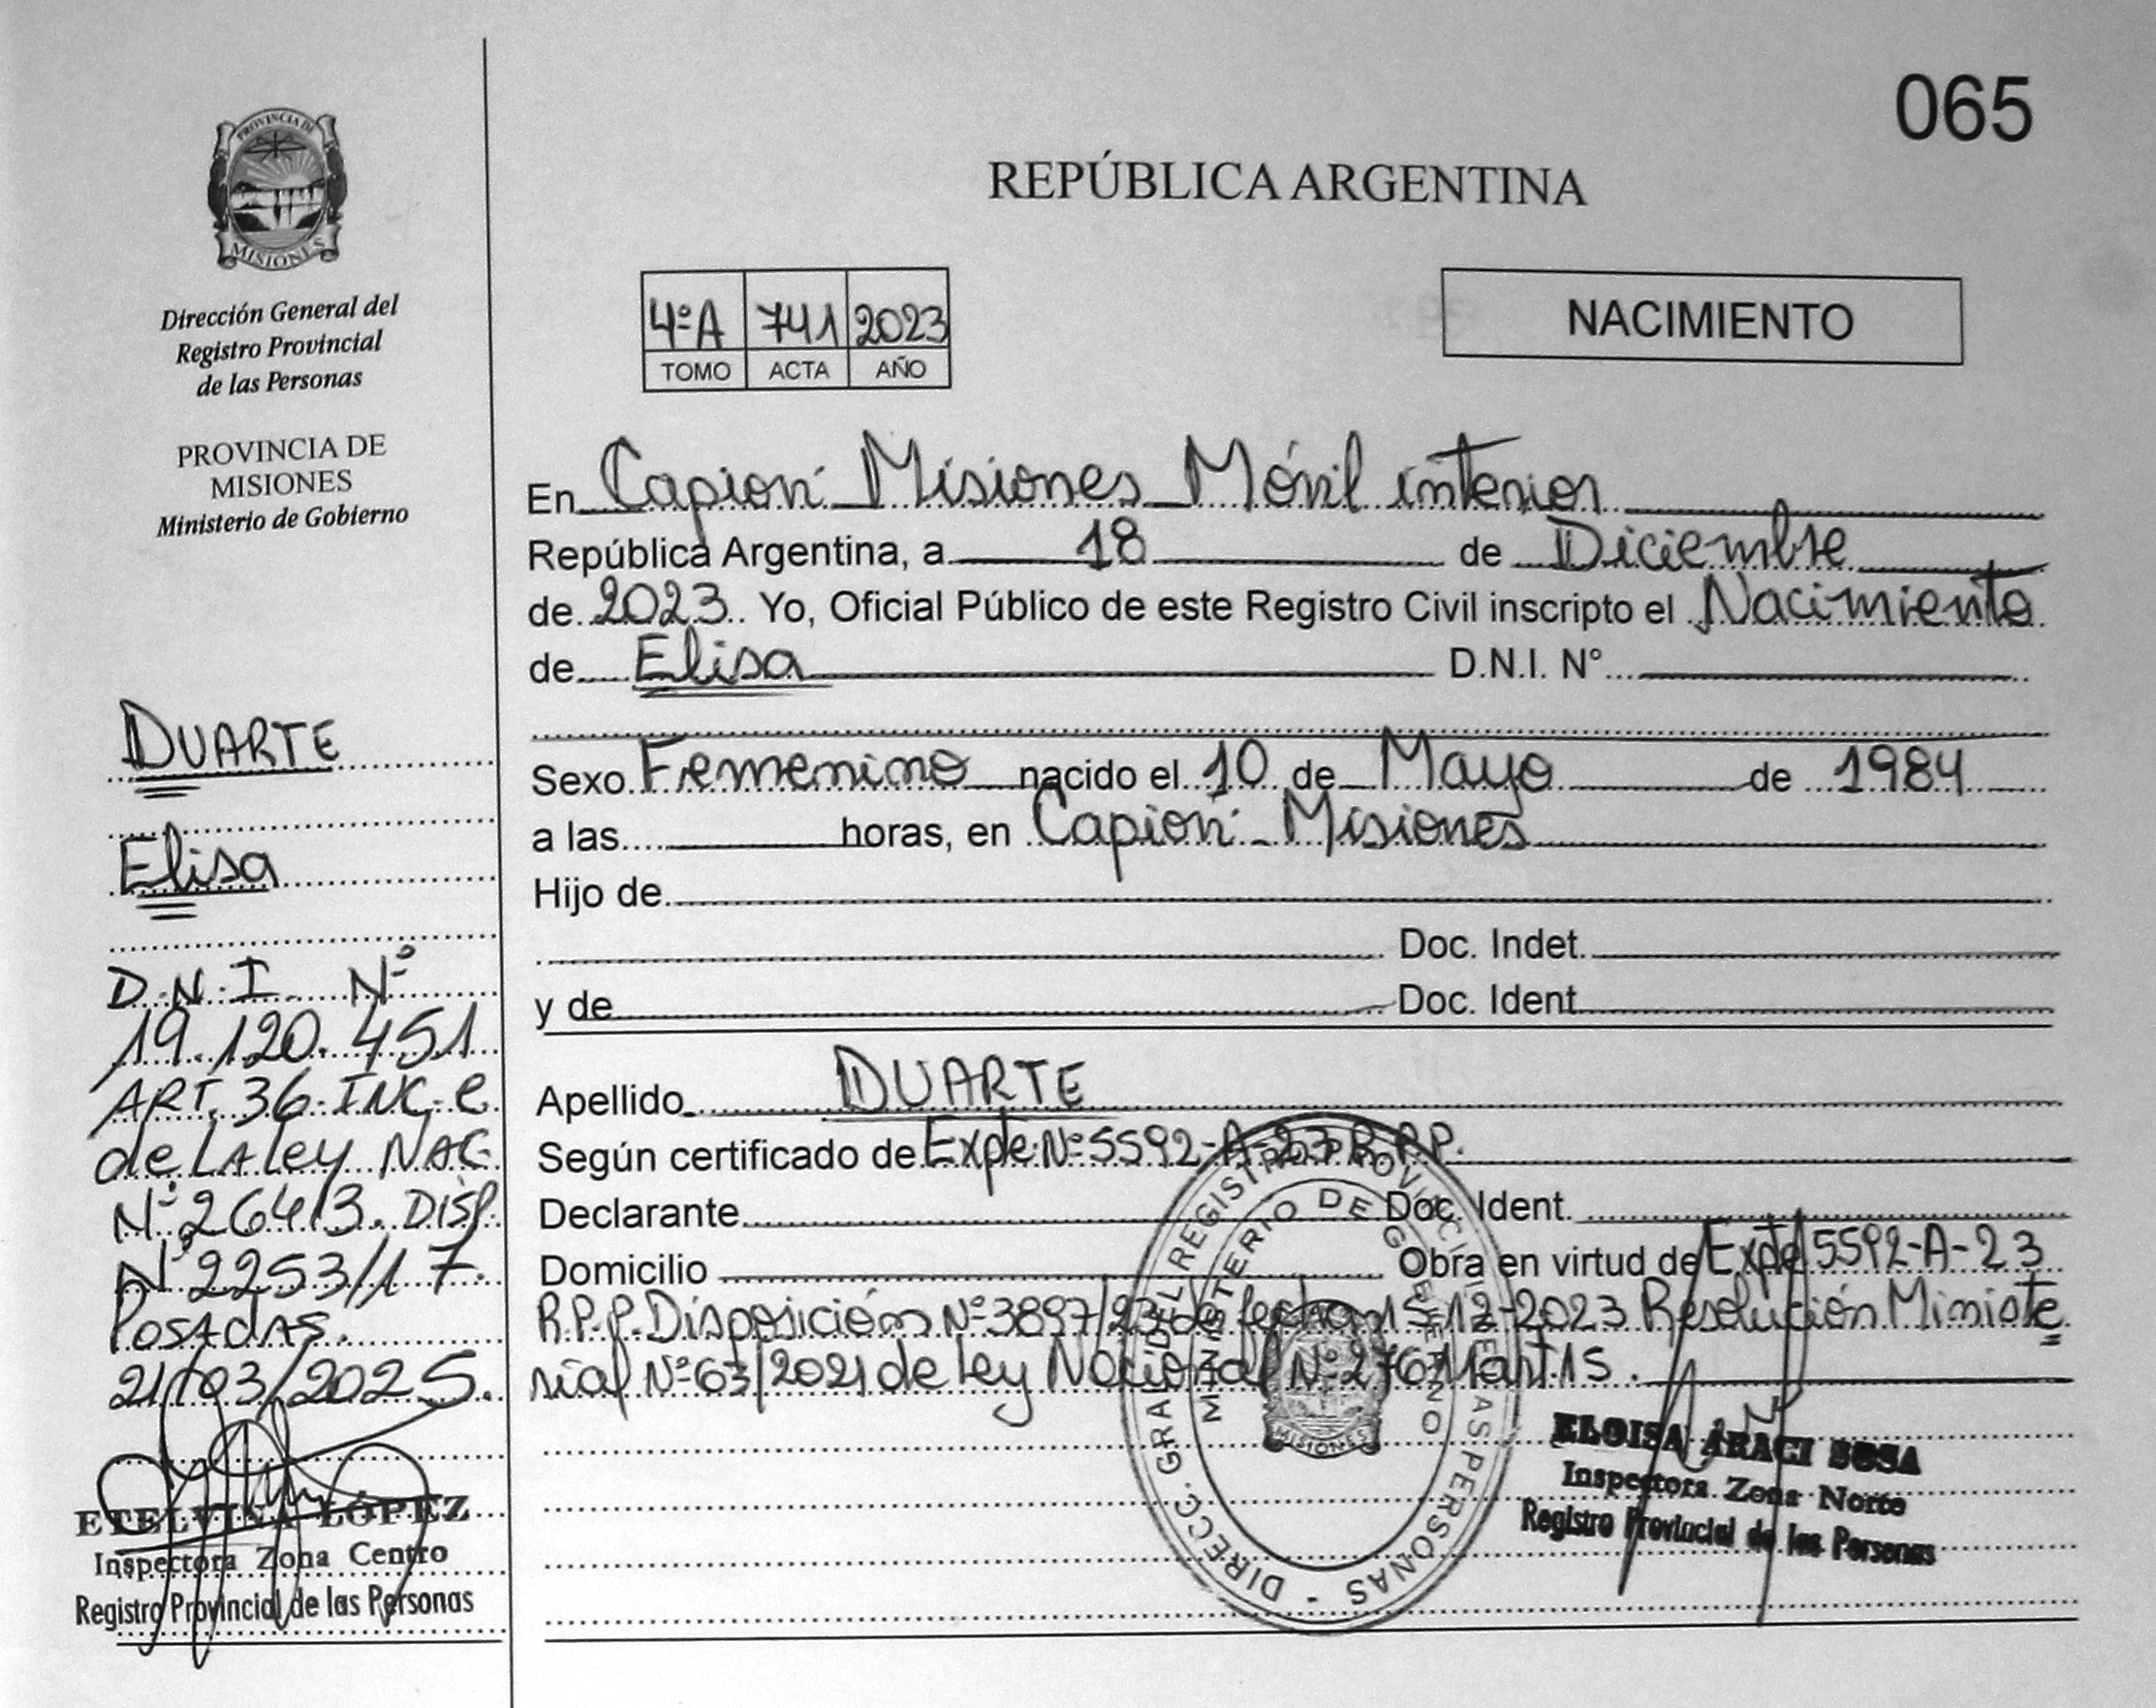 065
PROVINCIA DE
MISIONES
Dirección General del
Registro Provincial
de las Personas
PROVINCIA DE
MISIONES
Ministerio de Gobierno
DUARTE
Elisa
D.N.I. Nº
19.120.451
ART. 36-INC-C
de LA Ley NAC
Nº 26413. DISP.
Nº 2253/17.
POSADAS.
21/03/2025.
ETELVINA LÓPEZ
Inspectora Zona Centro
Registro Provincial de las Personas
REPÚBLICA ARGENTINA
4ºA 741 2023
TOMO ACTA AÑO
NACIMIENTO
En Capioví - Misiones Móvil interior
República Argentina, a 18 de Diciembre
de 2023 Yo, Oficial Público de este Registro Civil inscripto el Nacimiento
de Elisa D.N.I. Nº
Sexo Femenino nacido el 10 de Mayo de 1984
a las horas, en Capioví - Misiones
Hijo de
Doc. Indet.
y de Doc. Ident.
Apellido DUARTE
Según certificado de Expte Nº 5592-A-23 R.P.P.
Declarante Doc. Ident.
Domicilio Obra en virtud de Expte 5592-A-23
R.P.P. Disposición Nº 3897/23 de fecha 15-12-2023 Resolución Ministe
rial Nº 63/2021 de Ley Nacional Nº 27611 art 15.
DIRECC. GRAL. DEL REGISTRO PROVINCIAL DE LAS PERSONAS -
MINISTERIO DE GOBIERNO
MISIONES
ELOISA ARACI SOSA
Inspectora Zona Norte
Registro Provincial de las Personas